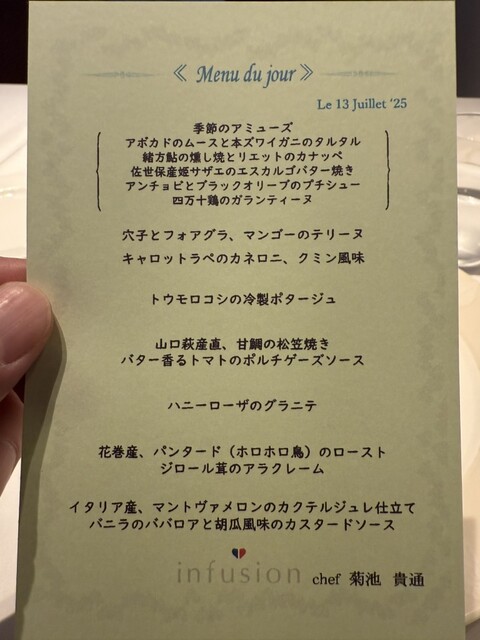 《 Menu du jour 》
Le 13 Juillet '25
季節のアミューズ
アボカドのムースと本ズワイガニのタルタル
緒方鮎の燻し焼とリエットのカナッペ
佐世保産姫サザエのエスカルゴバター焼き
アンチョビとブラックオリーブのプチシュー
四万十鶏のガランティーヌ
穴子とフォアグラ、マンゴーのテリーヌ
キャロットラペのカネロニ、クミン風味
トウモロコシの冷製ポタージュ
山口萩産直、甘鯛の松笠焼き
バター香るトマトのポルチゲーズソース
ハニーローザのグラニテ
花巻産、パンタード（ホロホロ鳥）のロースト
ジロール茸のアラクレーム
イタリア産、マントヴァメロンのカクテルジュレ仕立て
バニラのババロアと胡瓜風味のカスタードソース
infusion chef 菊池 貴通